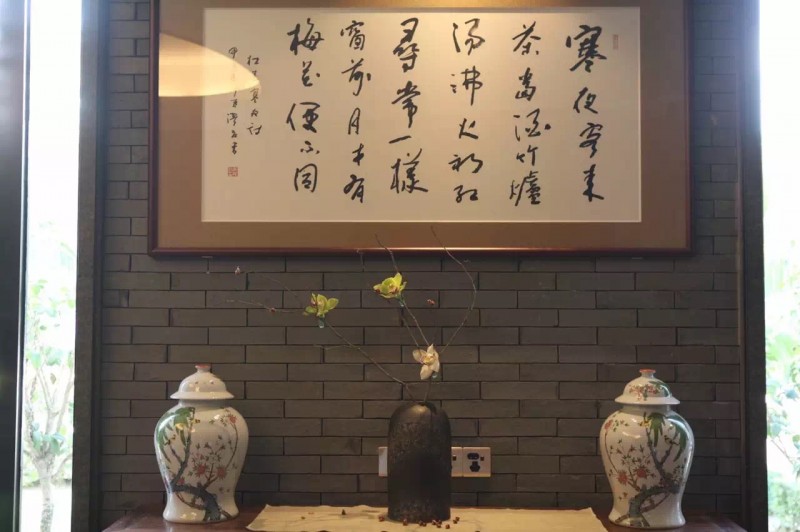 寒夜客来
茶当酒竹炉
汤沸火初红
寻常一样
窗前月才有
梅花便不同